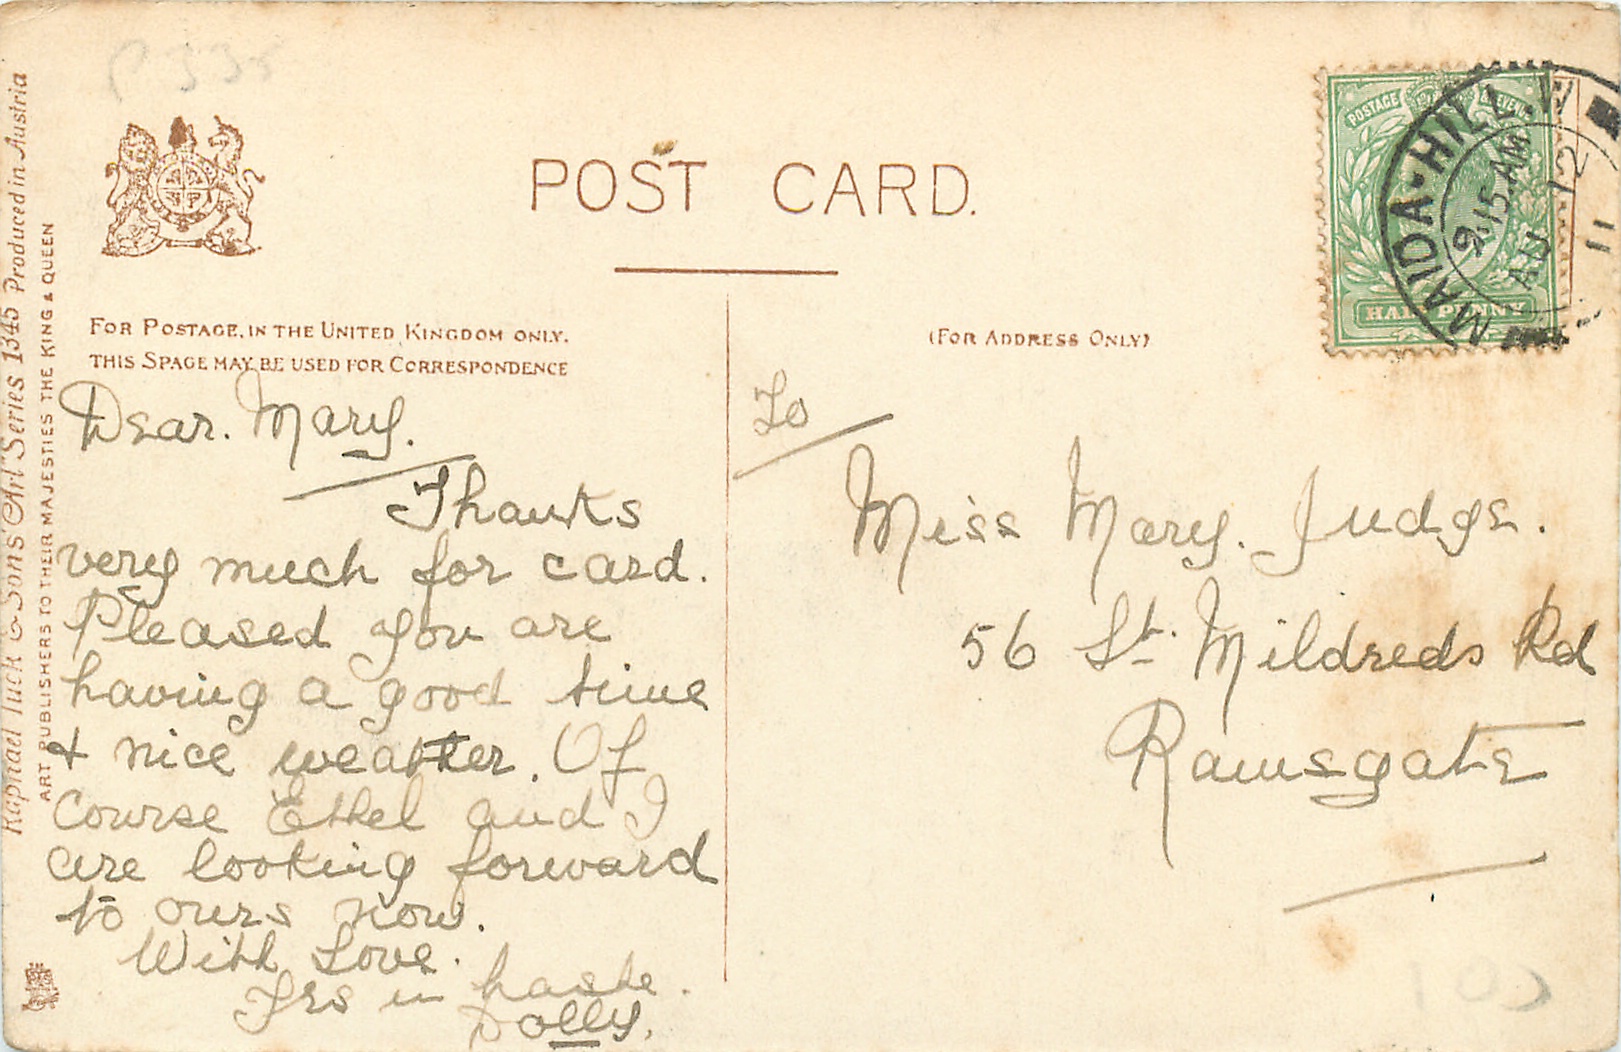 P 335
POST CARD.
FOR POSTAGE, IN THE UNITED KINGDOM ONLY,
THIS SPACE MAY BE USED FOR CORRESPONDENCE
(FOR ADDRESS ONLY)
Raphael Tuck & Sons' "Art" Series 1345 Produced in Austria
ART PUBLISHERS TO THEIR MAJESTIES THE KING & QUEEN
POSTAGE REVENUE
HALF PENNY
MAIDA-HILL.W
9.15 AM
AU 12
11
Dear. Mary.
Thanks
very much for card.
Pleased you are
having a good time
& nice weather. Of
Course Ethel and I
are looking forward
to ours now.
With Love.
Yrs in haste.
Dolly.
To
Miss Mary. Judge.
56 St. Mildreds Rd
Ramsgate